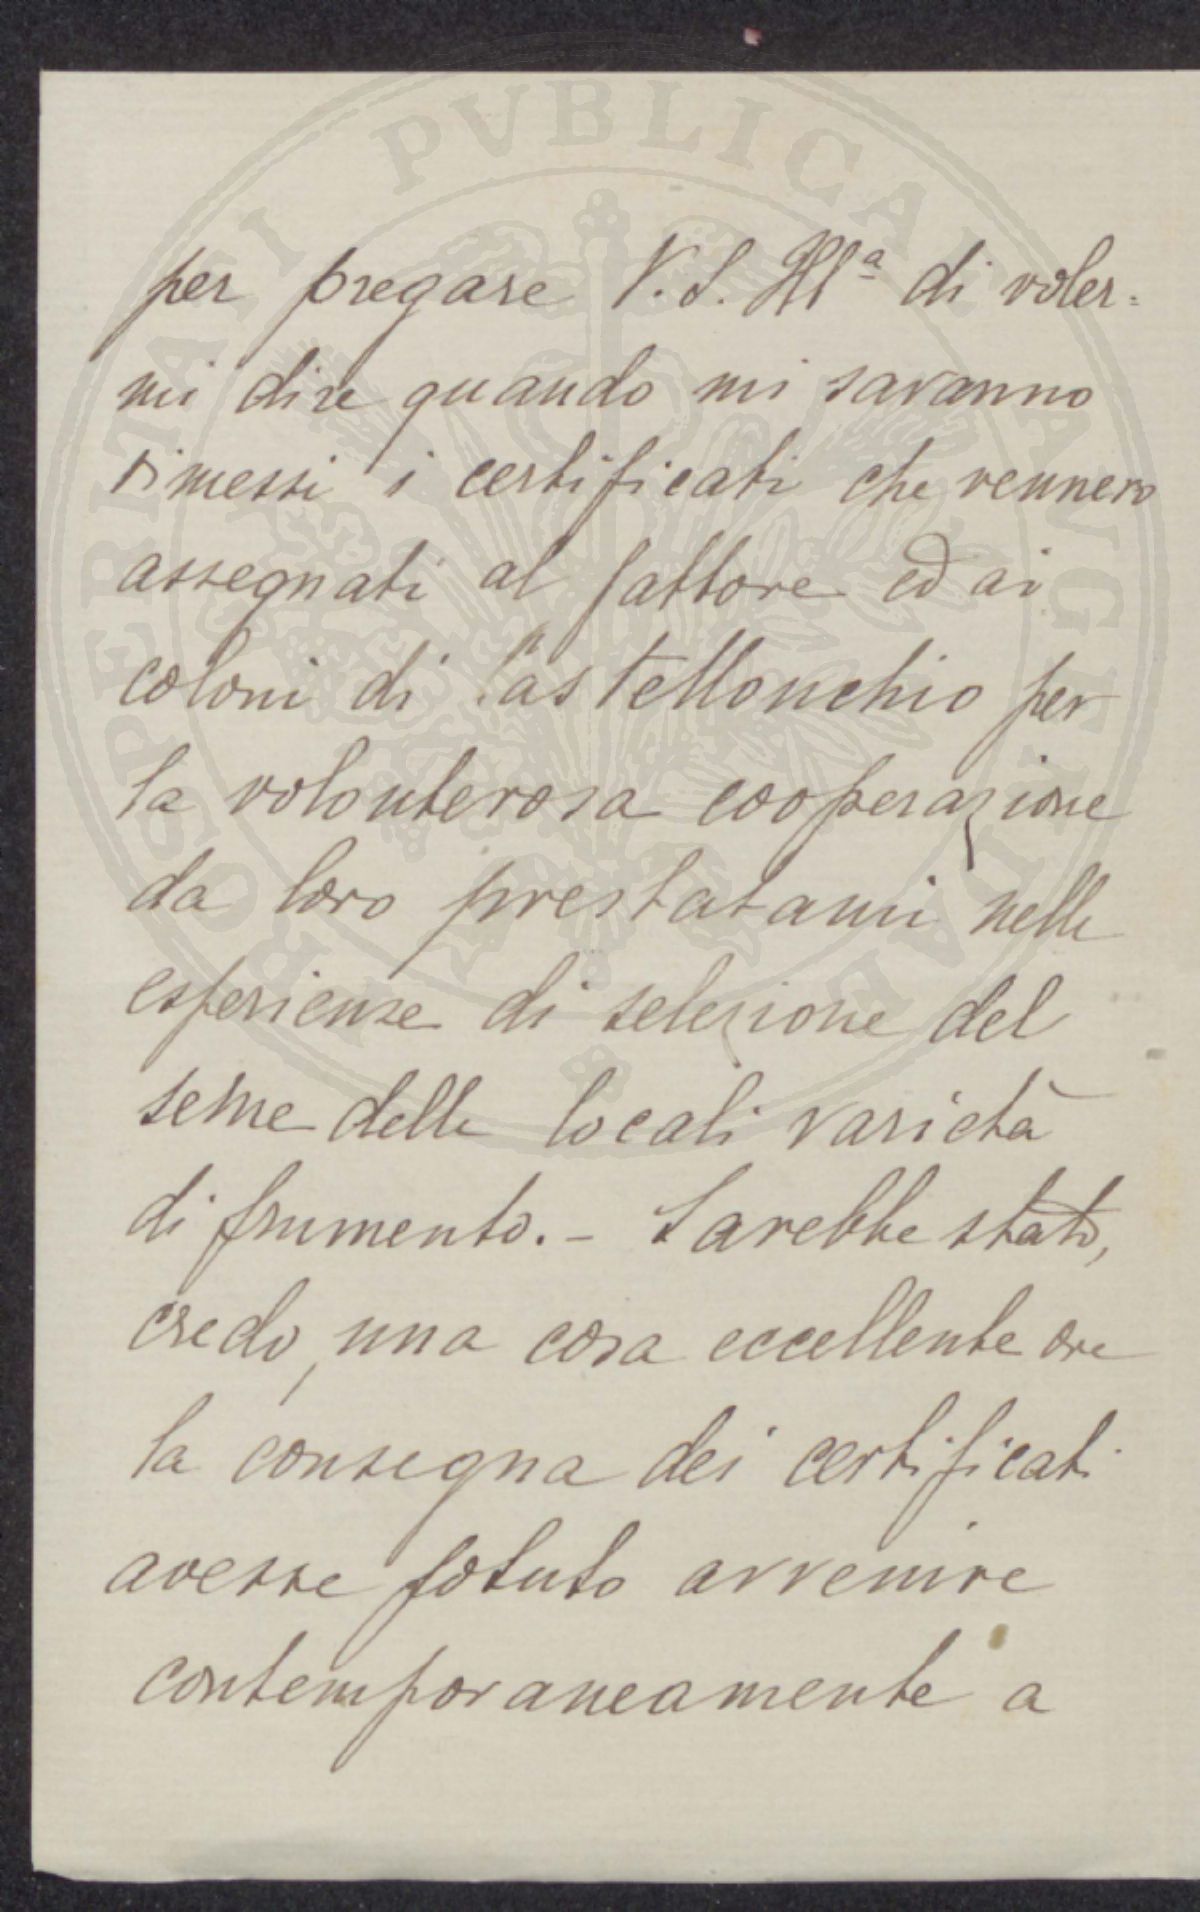 PROSPERITATI PVBLICAE AVGENDAE
per pregare V. S. Ill.ª di voler=
mi dire quando mi saranno
rimessi i certificati che vennero
assegnati al fattore ed ai
coloni di Castellonchio per
la volonterosa cooperazione
da loro prestatami nelle
esperienze di selezione del
seme delle locali varietà
di frumento. - Sarebbe stato,
credo, una cosa eccellente ove
la consegna dei certificati
avesse potuto avvenire
contemporaneamente a